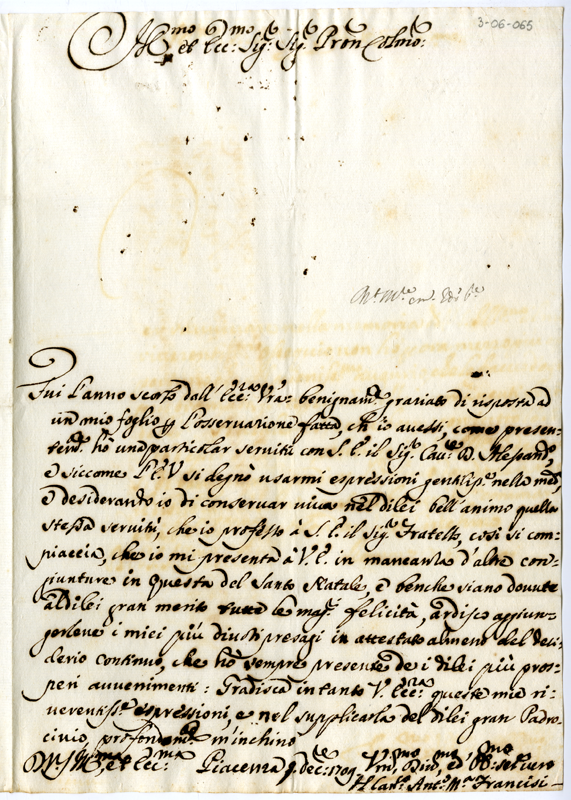 3-06-065
Ill:mo et Ecc: Sig:r Sig:r Pron Colmo:
Fui l'anno scorso dall'Ecc:za Vra benignam:te graziato di risposta ad
un mio foglio p l'osservazione fatta, ch'io avessi, come presen-
tem:te hò una particolar servitù con S. E. il Sig:r Cau:re D. Alessand:o
E siccome l'E. V si degnò usarmi espressioni gentiliss:e nella med:a,
E desiderando io di conservar viva nel dilei bell'animo quella
stessa servitù, che io professo à S. E. il Sig:r Fratello, così si com-
piaccia, che io mi presenta à V. E. in mancanza d'altre con-
giunture in questa del Santo Natale, è benche siano dovute
al dilei gran merito tutte le mag:ri felicità, ardisco aggiun-
gerleue i miei più diuoti presagi in attestato almeno del desi-
derio continuo, che hò sempre presente de i dilei più pros-
peri auuenimenti: Gradisca in tanto V. Ecc:za queste mie ri-
uerentiss:e espressioni, e nel supplicarla del dilei gran Padro-
cinio profondam:te m'inchino
D V. Ill:ma et Ecc:ma Piacenza Xcēc: 1709 Vm:o Diu:mo ed Obb: se: uero
Ant:o M:a Francisi-